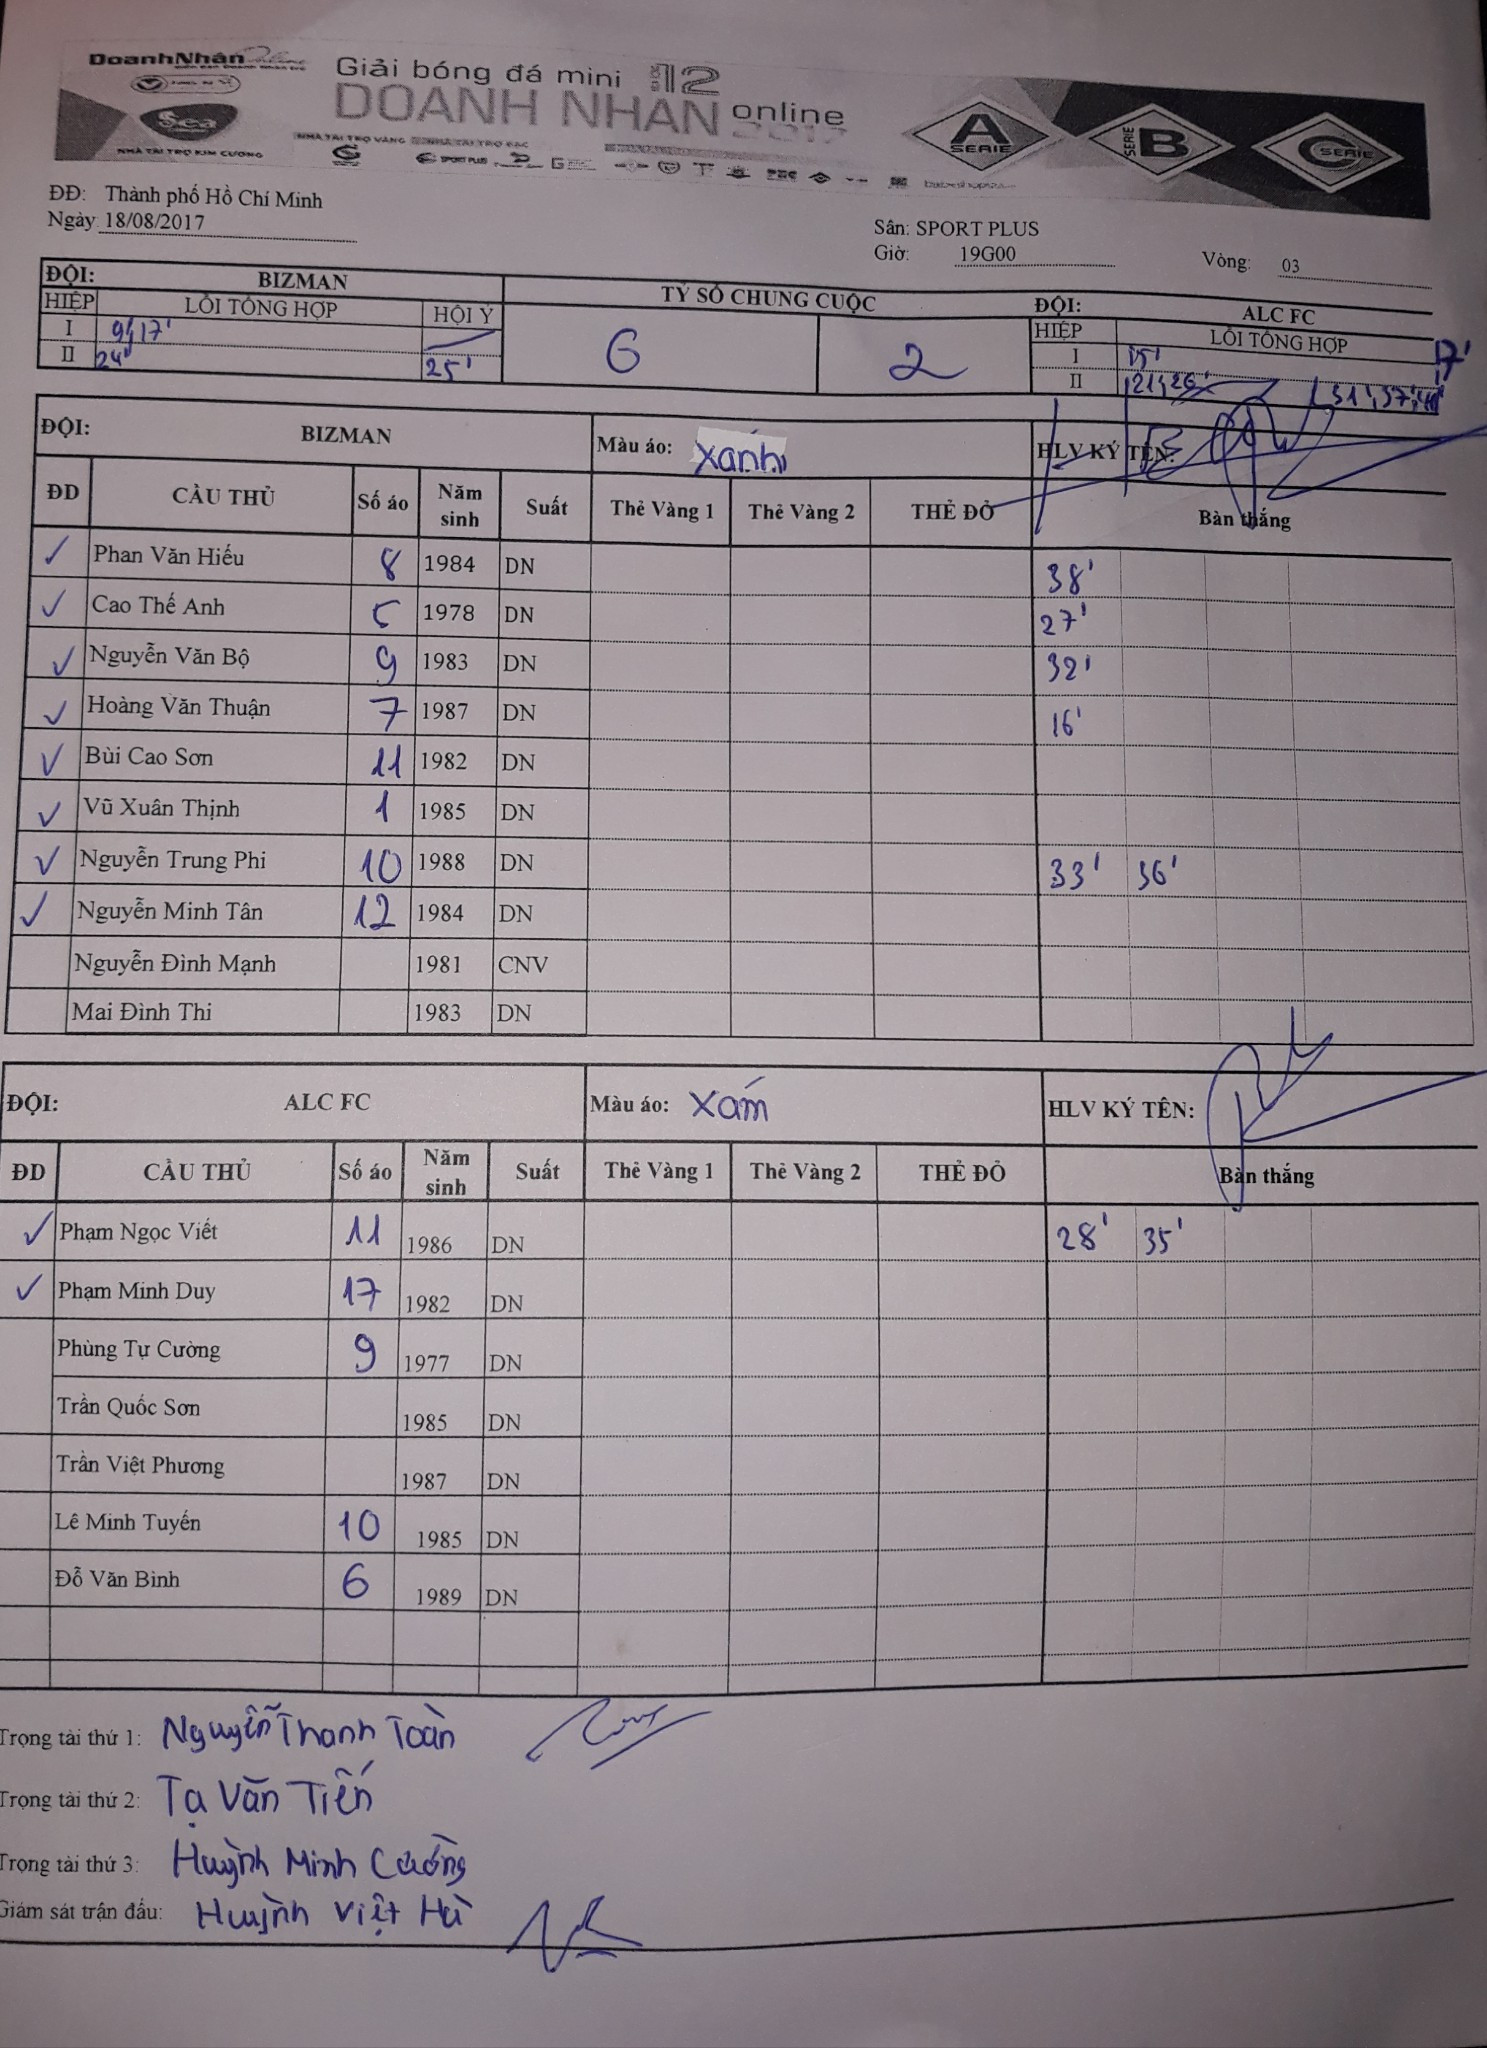 DoanhNhân Online
Giải bóng đá mini 12
DOANH NHÂN online 2017
A SERIE
SERIE B
C SERIE
Sea
NHÀ TÀI TRỢ KIM CƯƠNG
NHÀ TÀI TRỢ VÀNG NHÀ TÀI TRỢ BẠC
SPORT PLUS
ĐĐ: Thành phố Hồ Chí Minh
Ngày 18/08/2017
Sân: SPORT PLUS
Giờ: 19G00 Vòng: 03
ĐỘI: BIZMAN TỶ SỐ CHUNG CUỘC ĐỘI: ALC FC
HIỆP LỖI TỔNG HỢP HỘI Ý HIỆP LỖI TỔNG HỢP
I 9' 17' 6 2 I 15' 17'
II 24' 25' II 21', 26' 31', 37',
ĐỘI: BIZMAN Màu áo: Xanh HLV KÝ TÊN:
ĐD CẦU THỦ Số áo Năm sinh Suất Thẻ Vàng 1 Thẻ Vàng 2 THẺ ĐỎ Bàn thắng
✓ Phan Văn Hiếu 8 1984 DN 38'
✓ Cao Thế Anh 5 1978 DN 27'
✓ Nguyễn Văn Bộ 9 1983 DN 32'
✓ Hoàng Văn Thuận 7 1987 DN 16'
✓ Bùi Cao Sơn 11 1982 DN
✓ Vũ Xuân Thịnh 1 1985 DN
✓ Nguyễn Trung Phi 10 1988 DN 33' 36'
✓ Nguyễn Minh Tân 12 1984 DN
Nguyễn Đình Mạnh 1981 CNV
Mai Đình Thi 1983 DN
ĐỘI: ALC FC Màu áo: Xám HLV KÝ TÊN:
ĐD CẦU THỦ Số áo Năm sinh Suất Thẻ Vàng 1 Thẻ Vàng 2 THẺ ĐỎ Bàn thắng
✓ Phạm Ngọc Viết 11 1986 DN 28' 35'
✓ Phạm Minh Duy 17 1982 DN
Phùng Tự Cường 9 1977 DN
Trần Quốc Sơn 1985 DN
Trần Việt Phương 1987 DN
Lê Minh Tuyến 10 1985 DN
Đỗ Văn Bình 6 1989 DN
Trọng tài thứ 1: Nguyễn Thanh Toàn
Trọng tài thứ 2: Tạ Văn Tiến
Trọng tài thứ 3: Huỳnh Minh Cường
Giám sát trận đấu: Huỳnh Việt Hà